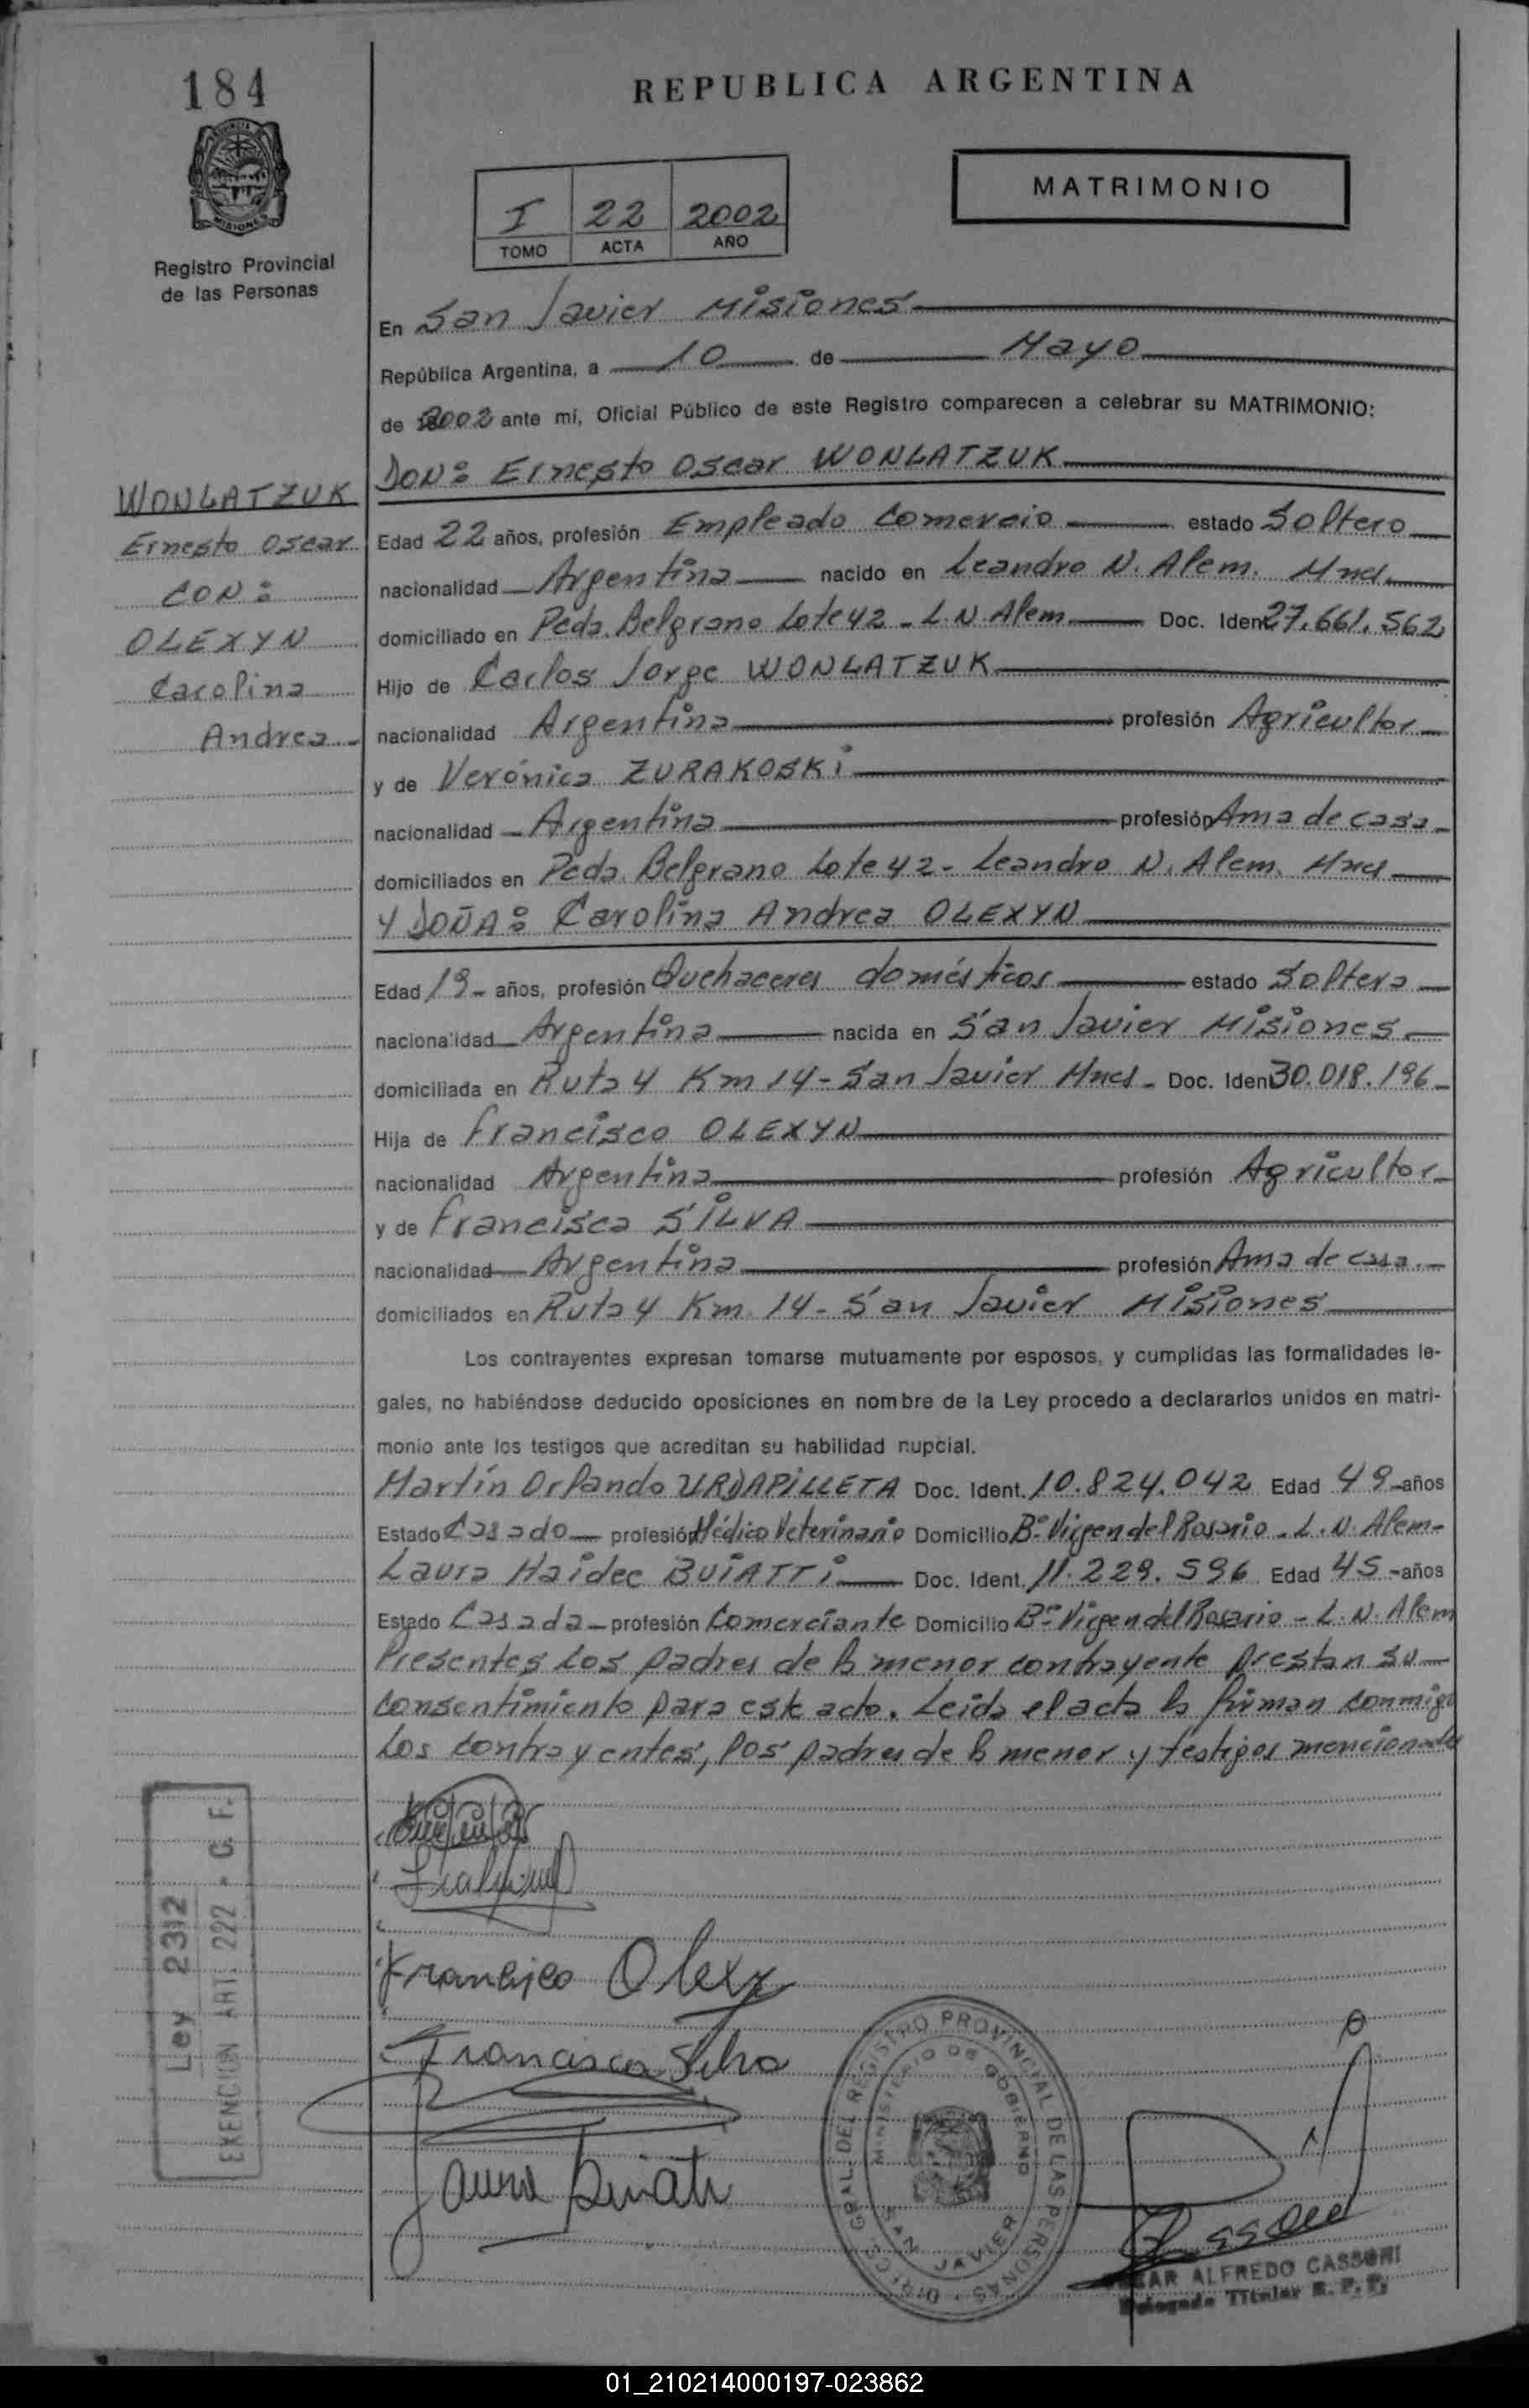 184
REPUBLICA ARGENTINA
PROVINCIA DE
MISIONES
Registro Provincial
de las Personas
I 22 2002
TOMO ACTA AÑO
MATRIMONIO
En San Javier Misiones
República Argentina, a 10 de Mayo
de 2002 ante mí, Oficial Público de este Registro comparecen a celebrar su MATRIMONIO:
DON: Ernesto Oscar WONLATZUK
WONLATZUK
Ernesto Oscar
CON:
OLEXYN
Carolina
Andrea
Edad 22 años, profesión Empleado Comercio estado Soltero
nacionalidad Argentina nacido en Leandro N. Alem. Mnes
domiciliado en Pcda. Belgrano Lote 42 - L.N. Alem Doc. Iden 27.661.562
Hijo de Carlos Jorge WONLATZUK
nacionalidad Argentina profesión Agricultor
y de Verónica ZURAKOSKi
nacionalidad Argentina profesión Ama de casa
domiciliados en Pcda. Belgrano Lote 42 - Leandro N. Alem. Mnes
Y DOÑA: Carolina Andrea OLEXYN
Edad 19 - años, profesión Quehaceres domésticos estado Soltera
nacionalidad Argentina nacida en San Javier Misiones
domiciliada en Ruta 4 Km 14 - San Javier Mnes - Doc. Iden 30.018.196
Hija de Francisco OLEXYN
nacionalidad Argentina profesión Agricultor
y de Francisca SILVA
nacionalidad Argentina profesión Ama de casa.
domiciliados en Ruta 4 Km. 14 - San Javier Misiones
Los contrayentes expresan tomarse mutuamente por esposos, y cumplidas las formalidades le-
gales, no habiéndose deducido oposiciones en nombre de la Ley procedo a declararlos unidos en matri-
monio ante los testigos que acreditan su habilidad nupcial.
Martín Orlando URDAPILLETA Doc. Ident. 10.824.042 Edad 49 - años
Estado Casado profesión Médico Veterinario Domicilio Bº Virgen del Rosario - L.N. Alem -
Laura Haidee BUIATTi Doc. Ident. 11.229.596 Edad 45 - años
Estado Casada - profesión Comerciante Domicilio Bº Virgen del Rosario - L.N. Alem
Presentes Los padres de la menor contrayente prestan su
consentimiento para este acto. Leída el acta la firman conmigo
Los contrayentes, los padres de la menor y testigos mencionados
Ley 2312
EXENCION ART. 222 - C. F.
Francisco Olexy
Francisca Silva
Laura Buiatti
DIREC. GRAL. DEL REGISTRO PROVINCIAL DE LAS PERSONAS
MINISTERIO DE GOBIERNO
SAN JAVIER
ALFREDO CASSONI
Delegado Titular R. P. P.
01_210214000197-023862